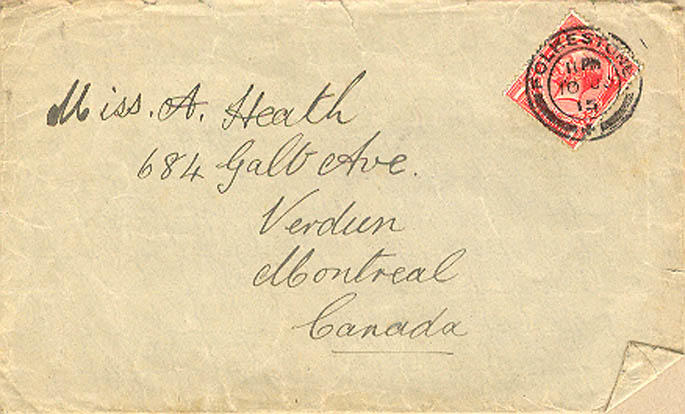 Miss. A. Heath
684 Galt Ave.
Verdun
Montreal
Canada
FOLKESTONE
11 PM
10
15